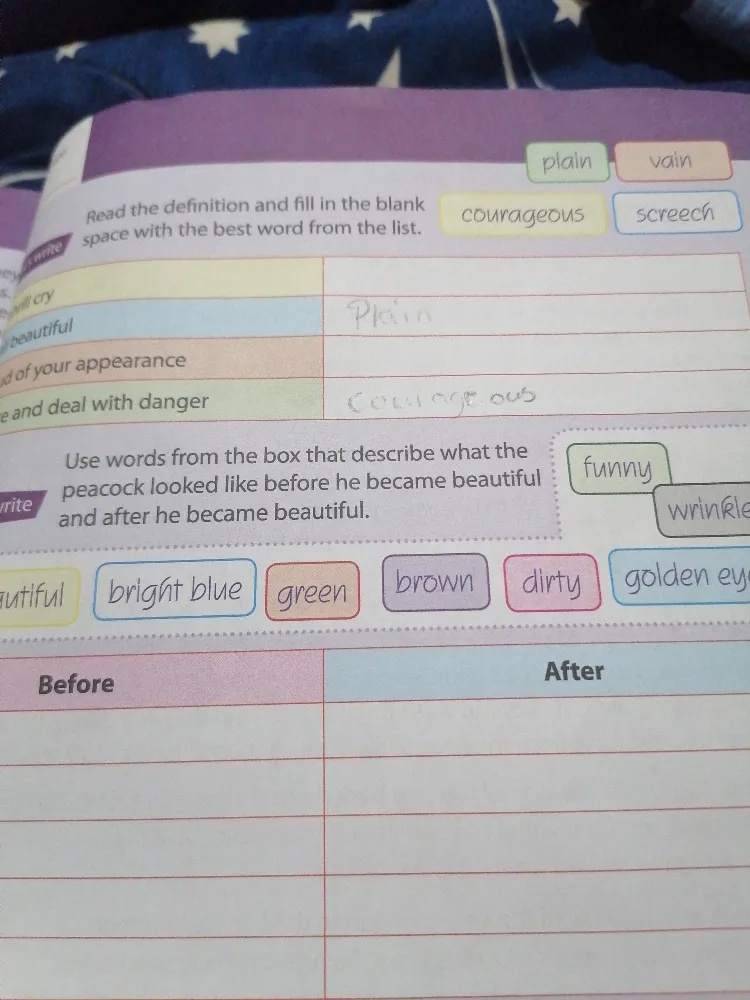 plain vain
Read the definition and fill in the blank courageous screech
space with the best word from the list.
write
cry
beautiful Plain
of your appearance
and deal with danger courageous
Use words from the box that describe what the
peacock looked like before he became beautiful
and after he became beautiful.
funny
wrinkle
bright blue green brown dirty golden
Before After